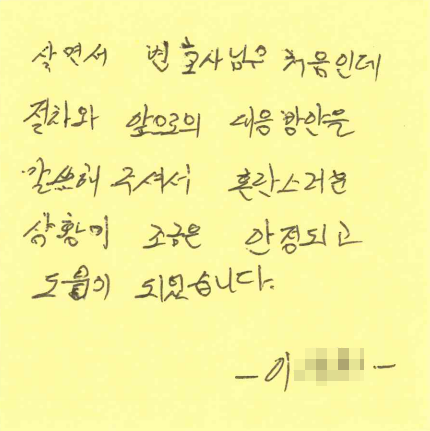 살면서 변호사님은 처음인데
절차와 앞으로의 대응방안을
말씀해 주셔서 혼란스러운
상황이 조금은 안정되고
도움이 되었습니다.
-이 -